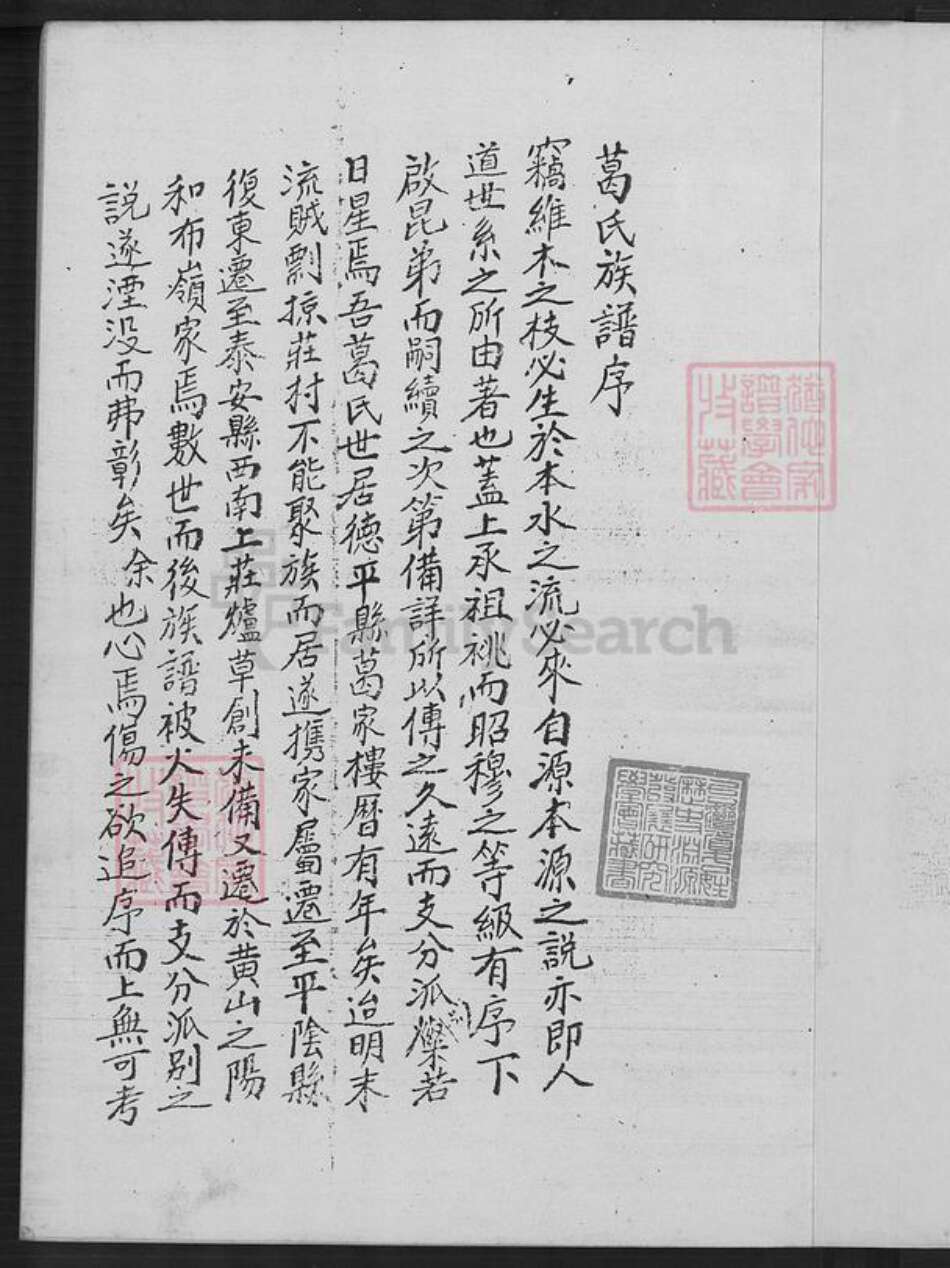 葛氏族譜序
竊維木之枝必生於本水之流必來自源本源之説亦即人
道世系之所由著也蓋上承祖祧而昭穆之等級有序下
啟昆弟而嗣續之次第備詳所以傳之久遠而支分派別燦若
日星焉吾葛氏世居德平縣葛家樓曆有年矣迨明末
流賊剽掠莊村不能聚族而居遂携家屬遷至平陰縣
復東遷至泰安縣西南上莊爐草創未備又遷於黄山之陽
和布嶺家焉數世而後族譜被火失傳而支分派别之
説遂湮没而弗彰矣余也心焉傷之欲追序而上無可考
譜學會
收藏
FamilySearch